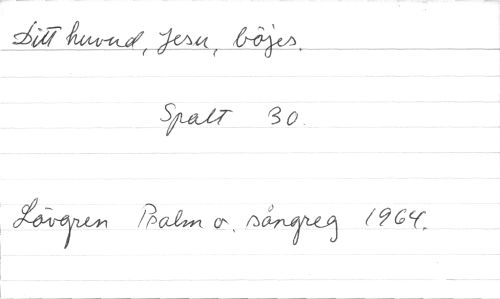 Ditt huvud, Jesu, böjes.
Spalt 30.
Lövgren Psalm o. sångreg 1964.